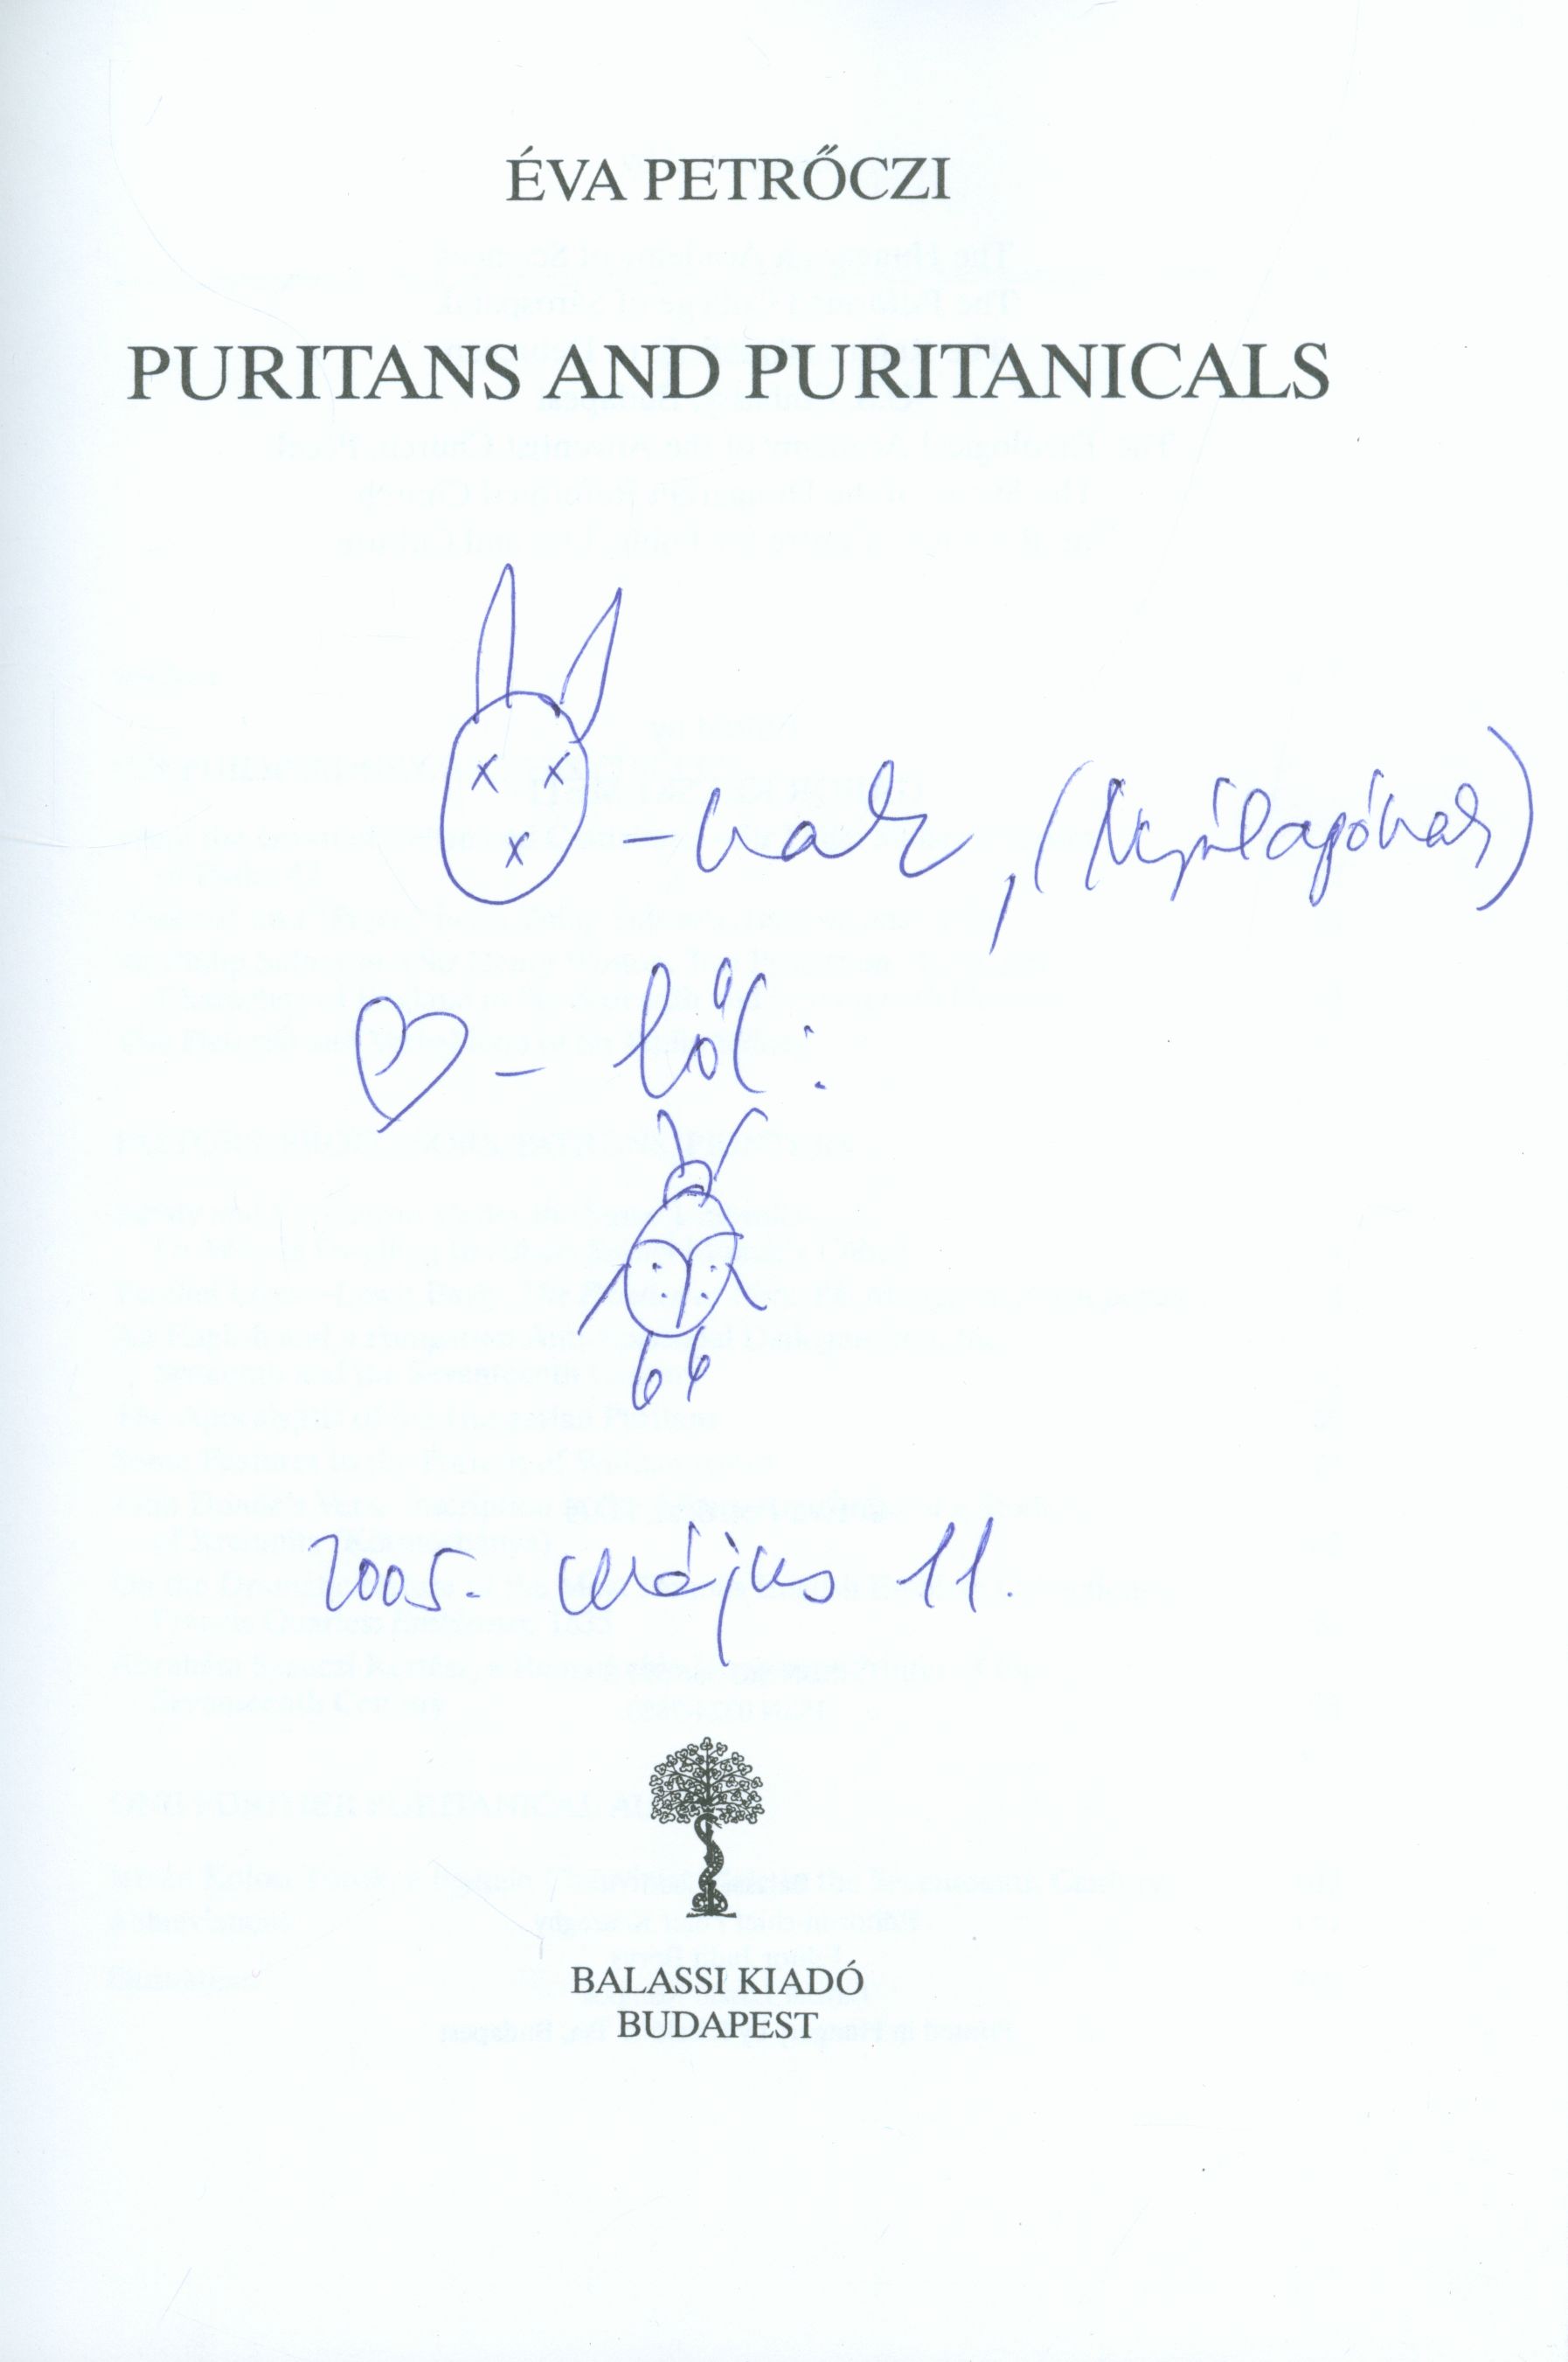 ÉVA PETRŐCZI
PURITANS AND PURITANICALS
-nak, (Nyúlapónak)
- ből:
2005. május 11.
BALASSI KIADÓ
BUDAPEST